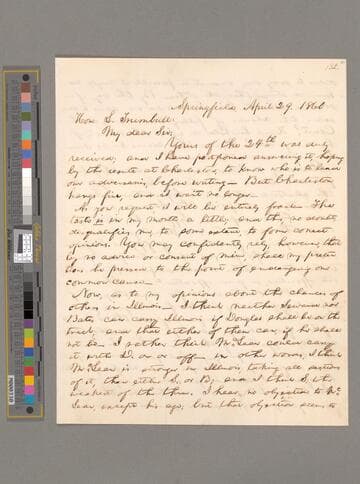 Springfield, April 29. 1860
Hon. L. Trumbull:
My dear Sir:
Yours of the 24th was duly
received; and I have postponed answering it, hoping
by the result at Charleston, to know who is to lead
our adversaries, before writing. But Charleston
hangs fire, and I wait no longer.
As you request, I will be entirely frank. The
taste is in my mouth a little; and this, no doubt,
disqualifies me, to some extent, to form correct
opinions. You may confidently rely, however, that
by no advice or consent of mine, shall my preten-
tions be pressed to the point of endangering our
common cause.
Now, as to my opinions about the chances of
others in Illinois. I think neither Seward nor
Bates can carry Illinois if Douglas shall be on the
track; and that either of them can, if he shall
not be. I rather think McLean could carry
it with D. on or off. In other words, I think
McLean is stronger in Illinois, taking all sections
of it, than either S. or B; and I think S. the
weakest of the three. I hear no objection to Mc-
Lean, except his age; but that objection seems to